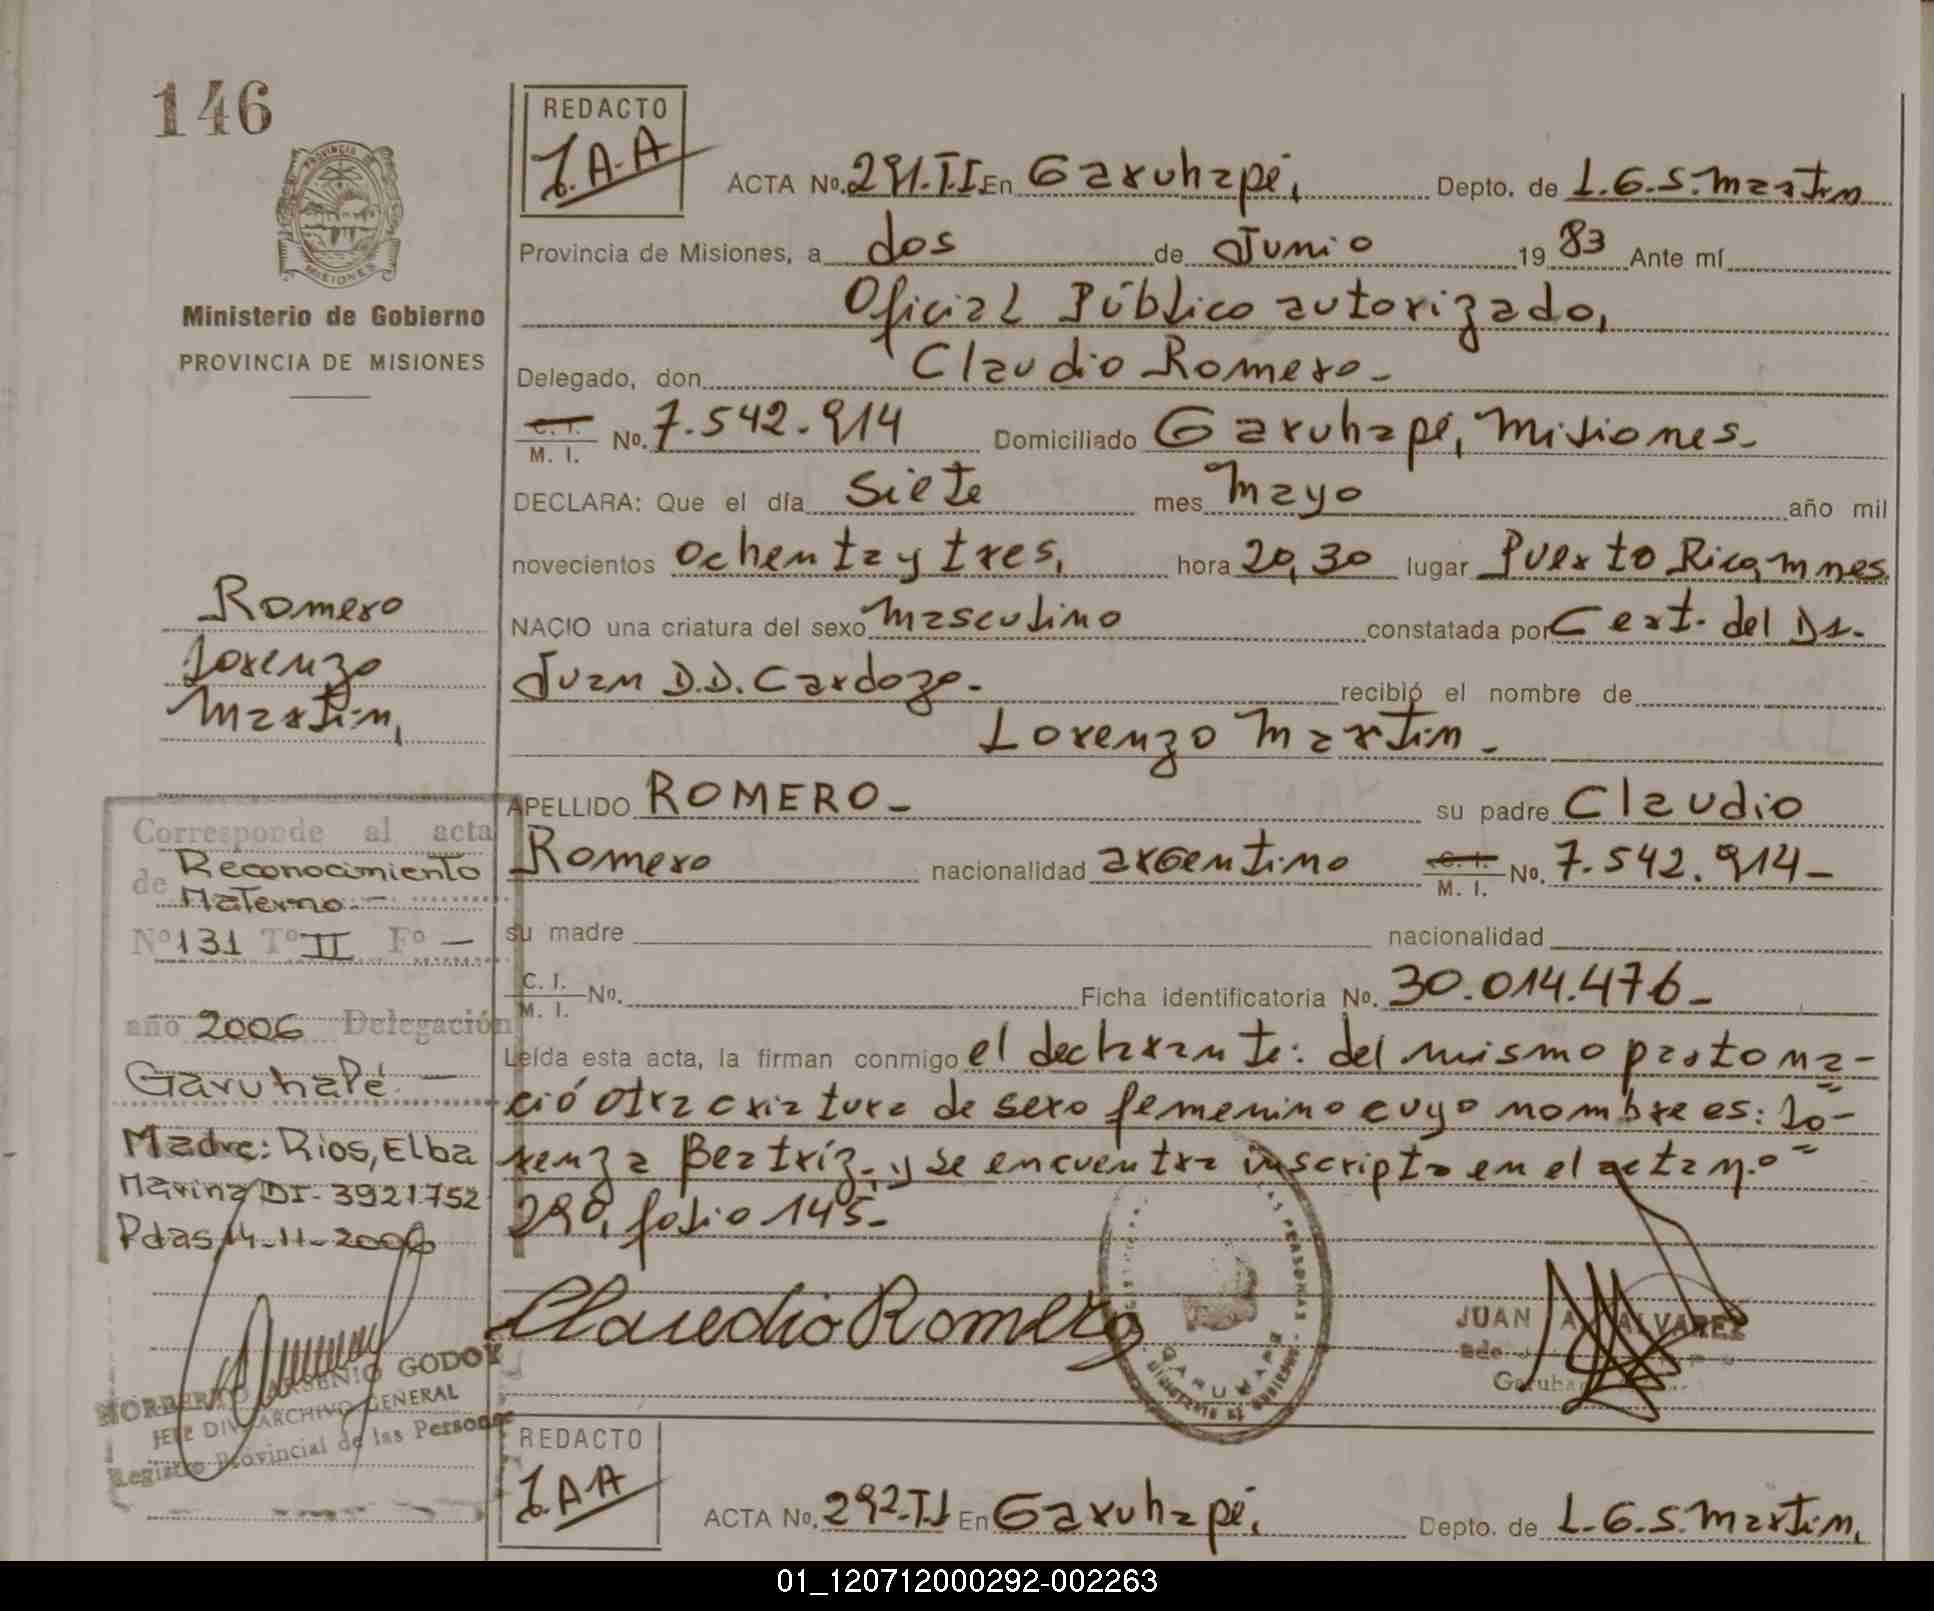 146
REDACTO
J.A.A
ACTA No. 291.T.I. En Garuhapé, Depto. de L.G.S. Martin
Provincia de Misiones, a dos de Junio 19 83 Ante mí
Oficial Público autorizado,
Ministerio de Gobierno
PROVINCIA DE MISIONES
Delegado, don Claudio Romero-
C. I.
M. I. No. 7.542.914 Domiciliado Garuhapé, Misiones-
DECLARA: Que el día Siete mes Mayo año mil
novecientos ochenta y tres, hora 20,30 lugar Puerto Rico, Mnes.
NACIO una criatura del sexo masculino constatada por Cert. del Dr.
Juan D.D. Cardozo- recibió el nombre de
Lorenzo Martin-
Romero
Lorenzo
Martin,
APELLIDO ROMERO- su padre Claudio
Romero nacionalidad argentino C. I.
M. I. No. 7.542.914-
su madre nacionalidad
C. I.
M. I. No. Ficha identificatoria No. 30.014.476-
Leída esta acta, la firman conmigo el declarante: del mismo parto na-
ció otra criatura de sexo femenino cuyo nombre es: Lo-
renza Beatríz, y se encuentra inscripta en el acta n.o
290, folio 145-
Corresponde al acta
de Reconocimiento
Materno.-
No 131 To II Fo -
año 2006 Delegación
Garuhapé.-
Madre: Rios, Elba
Marina DI- 3921752
Pdas, 14-11-2006
Claudio Romero
GARUHAPE
JUAN A. ALVAREZ
NORBERTO ARSENIO GODOY
JEFE DIV. ARCHIVO GENERAL
Registro Provincial de las Personas
REDACTO
J.A.A
ACTA No. 292.T.I En Garuhapé, Depto. de L.G.S. Martin,
01_120712000292-002263